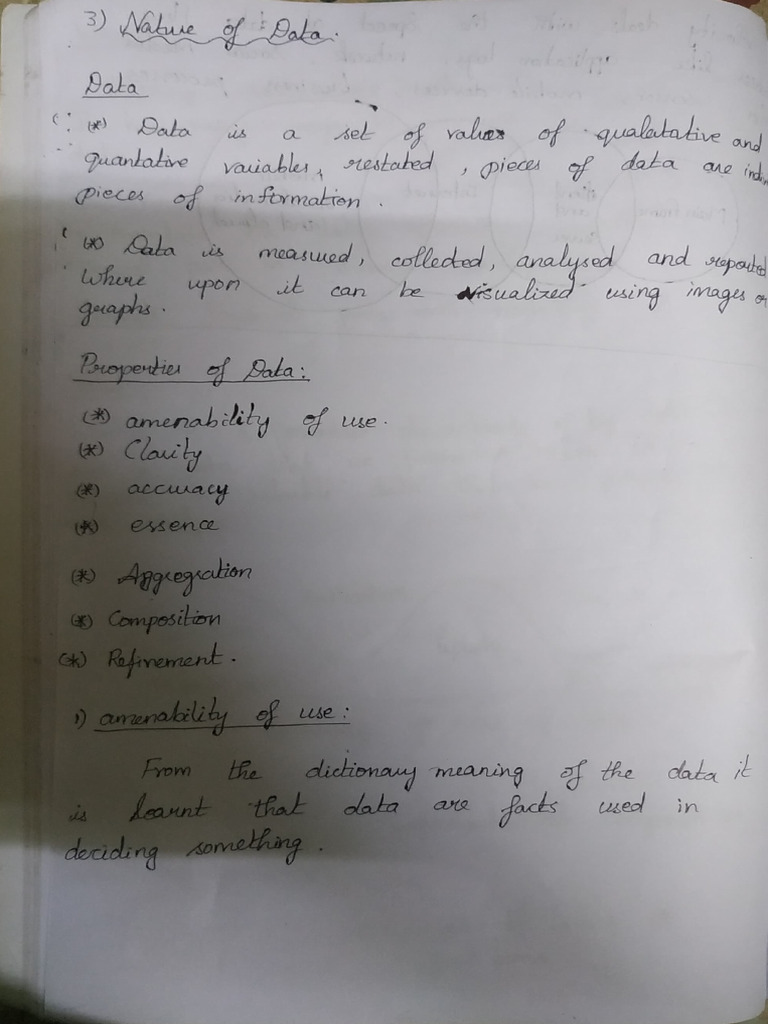 3) Nature of Data:
Data
(*) Data is a set of values of qualatative and
quantative variables, restated, pieces of data are indi
pieces of information.
(*) Data is measured, collected, analysed and reported
where upon it can be visualized using images or
graphs.
Properties of Data:
(*) amenability of use.
(*) Clarity
(*) accuracy
(*) essence
(*) Aggregration
(*) Composition
(*) Refinement.
1) amenability of use:
From the dictionary meaning of the data it
is learnt that data are facts used in
deciding something.